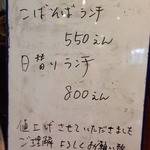 こばそばランチ
550えん
日替りランチ
800えん
値上げさせていただきました
ご理解よろしくお願い致